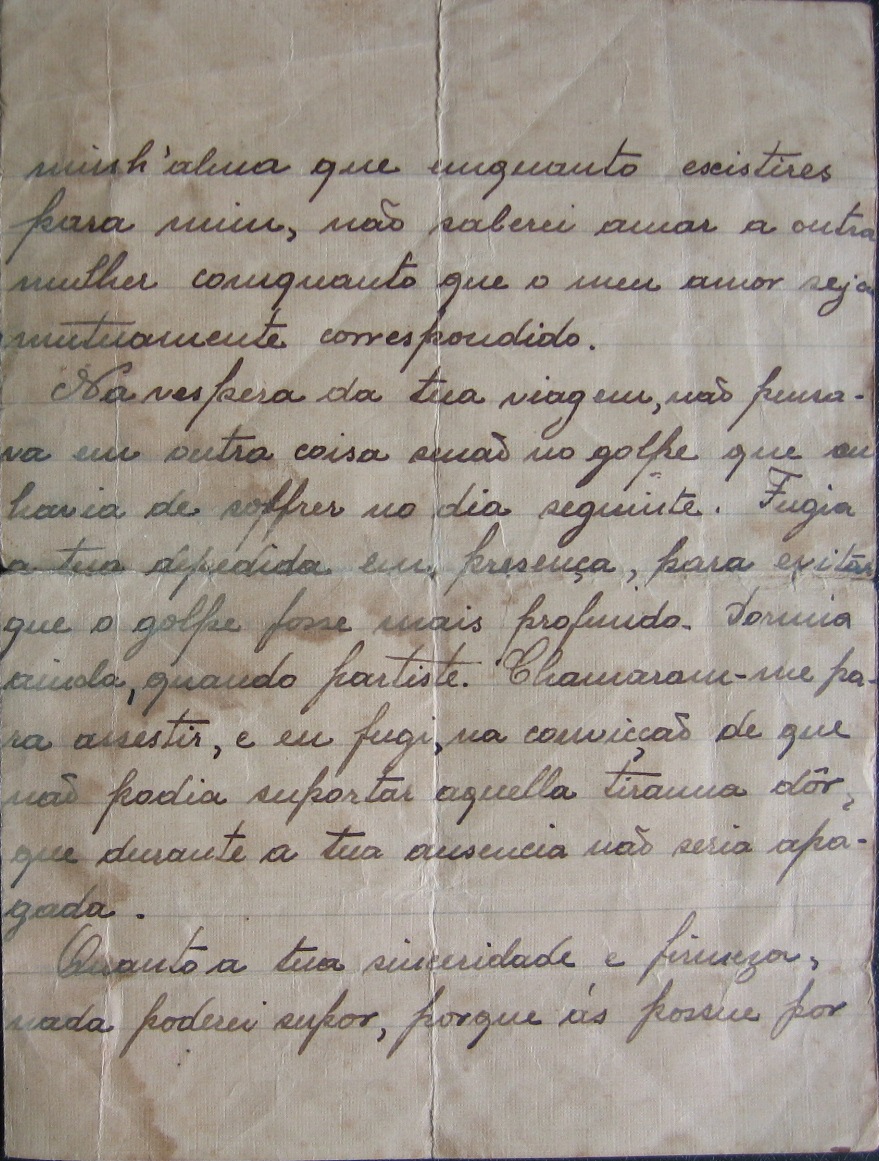 minh'alma que emquanto existires
para mim, não saberei amar a outra
mulher comquanto que o meu amor seja
mutuamente correspondido.
Na vespera da tua viagem, não pensa-
va em outra coisa senão no golpe que eu
havia de soffrer no dia seguinte. Fugia
a tua depedida em presença, para evitar
que o golpe fosse mais profundo. Dormia
ainda, quando partiste. Chamaram-me pa-
ra assestir, e eu fugi, na convicção de que
não podia suportar aquella tiranna dôr,
que durante a tua ausencia não seria apa-
gada.
Quanto a tua sinceridade e firmeza,
nada poderei supor, porque ás possue por